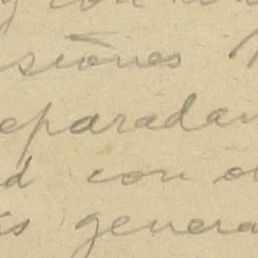 con
siones
eparadam
d con o
is genera